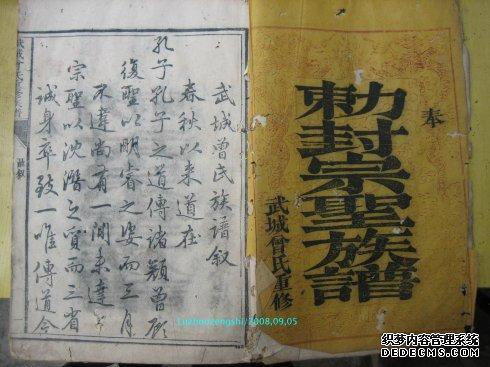 奉
勅封宗聖族譜
武城曾氏重修
武城曾氏族譜叙
春秋以来道在
孔子孔子之道傳諸顏曾顧
復聖以明睿之姿而三月
不違尚有一間未達
宗聖以沈潛之資而三省
誠身卒致一唯傳道合
Luzhouzengshi/2008,09,05
织梦内容管理系统
DEDECMS.COM